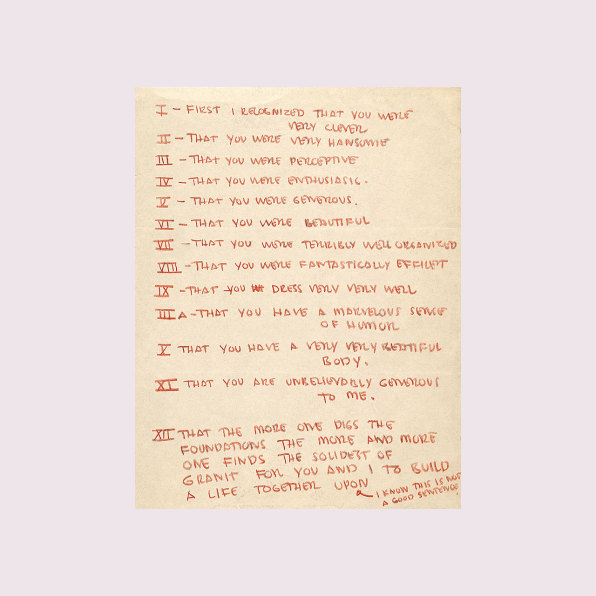 I - FIRST I RECOGNIZED THAT YOU WERE
VERY CLEVER
II - THAT YOU WERE VERY HANSOME
III - THAT YOU WERE PERCEPTIVE
IV - THAT YOU WERE ENTHUSIASIC.
V - THAT YOU WERE GENEROUS.
VI - THAT YOU WERE BEAUTIFUL
VII - THAT YOU WERE TERRIBLY WELL ORGANIZED
VIII - THAT YOU WERE FANTASTICALLY EFFILEPT
IX - THAT YOU DRESS VERY VERY WELL
IIII A - THAT YOU HAVE A MARVELOUS SENSE
OF HUMOR
X THAT YOU HAVE A VERY VERY BEAUTIFUL
BODY.
XI THAT YOU ARE UNBELIEVABLY GENEROUS
TO ME.
XII THAT THE MORE ONE DIGS THE
FOUNDATIONS THE MORE AND MORE
ONE FINDS THE SOLIDEST OF
GRANIT FOR YOU AND I TO BUILD
A LIFE TOGETHER UPON
I KNOW THIS IS NOT
A GOOD SENTENCE